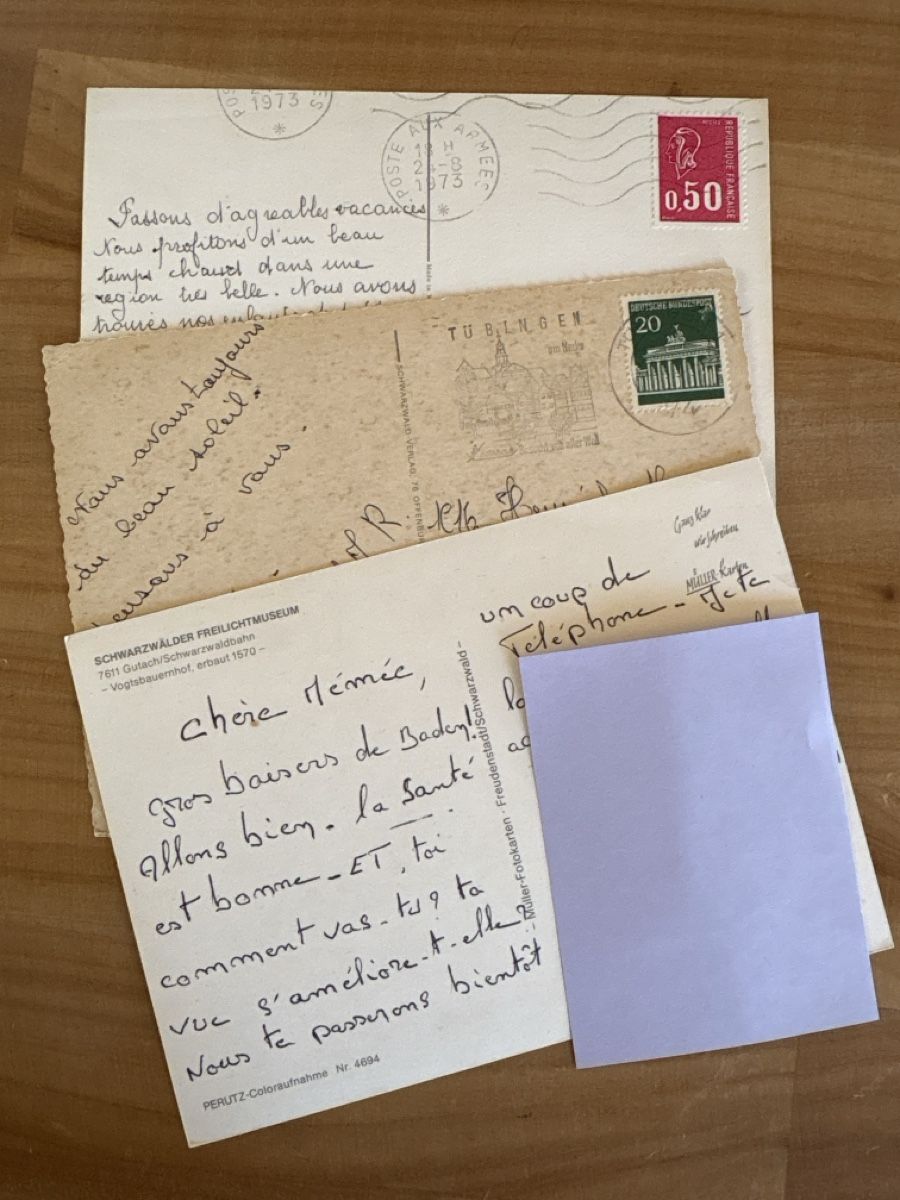 1973
POSTE AUX ARMEES
18 H
2 - 8
1973
*
*
RÉPUBLIQUE FRANÇAISE
0,50
Passons d'agreables vacances
Nous profitons d'un beau
temps chaud dans une
region tres belle. Nous avons
DEUTSCHE BUNDESPOST
20
TÜBINGEN
am Neckar
SCHWARZWALD VERLAG, 76 OFFENBURG
Nous avons toujours
du beau soleil.
Pensons à vous.
Ganz klar
wir schreiben
MÜLLER-Karten
SCHWARZWÄLDER FREILICHTMUSEUM
7611 Gutach/Schwarzwaldbahn
– Vogtsbauernhof, erbaut 1570 –
Chère Mémée,
Gros baisers de Baden!
Allons bien. la Santé
est bonne - ET, toi
comment vas-tu? ta
vue s'améliore-t-elle?
Nous te passerons bientôt
un coup de
Téléphone -
Müller-Fotokarten · Freudenstadt/Schwarzwald-
PERUTZ-Coloraufnahme Nr. 4694